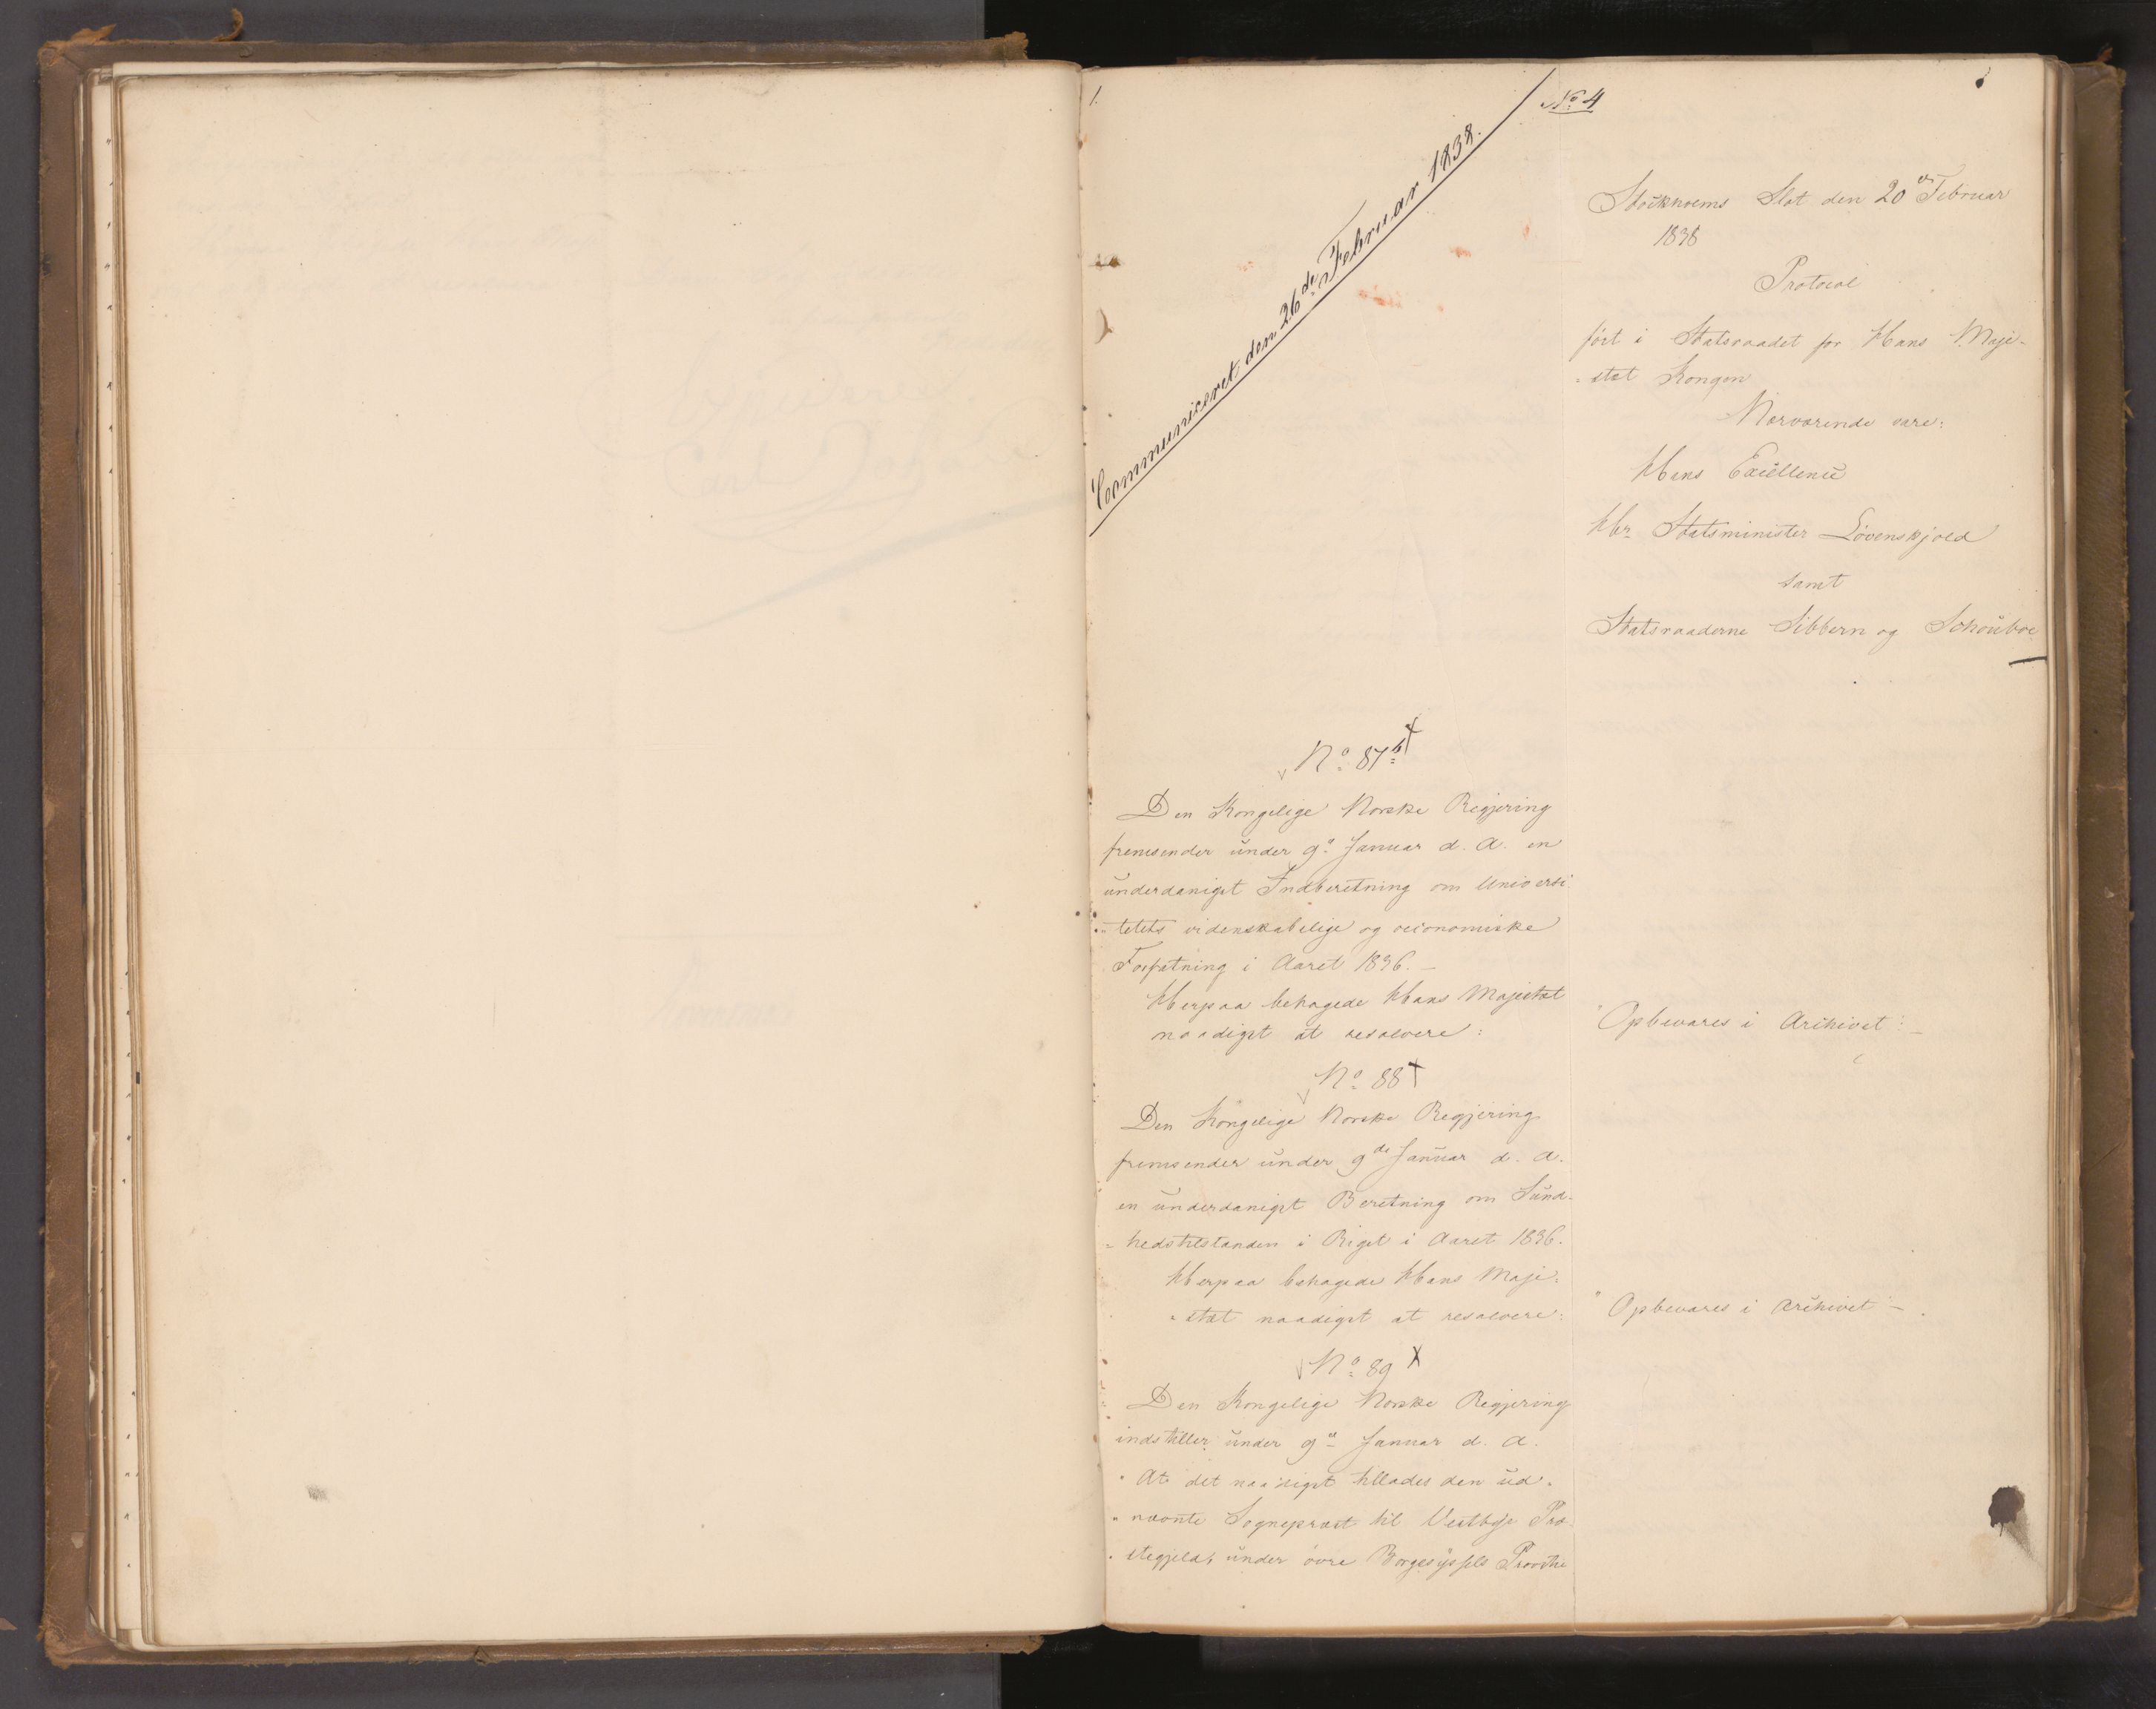 1.
No 4
Communiceret den 26de Februar 1838.
Stockholms Slot den 20de Februar
1838
Protocol
fört i Statsraadet for Hans Maje-
=stæt Kongen
Nærværende vare:
Hans Excellence
Hr. Statsminister Lövenskjold
samt
Statsraaderne Sibbern og Schouboe
No. 87b
Den Kongelige Norske Regjering
fremsender under 9de Januar d. A. en
underdanigst Indberetning om Universi
=tetets videnskabelige og oeconomiske
Forfatning i Aaret 1836.
Herpaa behagede Hans Majestæt
naadigst at resolvere:
"Opbevares i Archivet:
No. 88
Den Kongelige Norske Regjering
fremsender under 9de Januar d. A.
en underdanigst Beretning om Sund-
=hedstilstanden i Riget i Aaret 1836.
Herpaa behagede Hans Maje=
=stæt naadigst at resolvere:
"Opbevares i Archivet
No. 89
Den Kongelige Norske Regjering
indstiller under 9de Januar d. A.
"At det naadigst tillades den ud-
"nævnte Sognepræst til Vestby Præ-
"stegjeld, under övre Borgesyssels Provstie